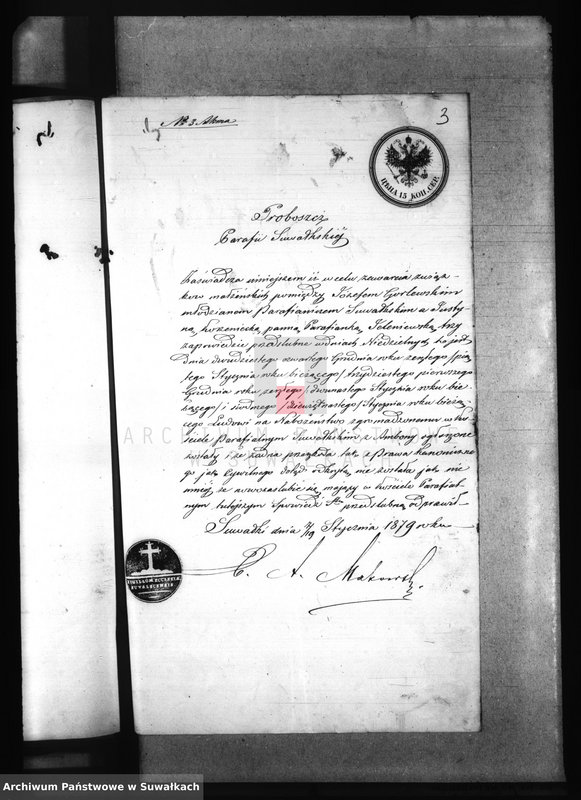 № 3 Aktowa
3
ЦѢНА 15 КОП. СЕР.
Proboszcz
Parafii Suwałkskiéj
Zaświadcza niniejszem iż w celu zawarcia związ-
kow małżeńskich pomiędzy Józefem Gorlewskim
młodzianem Parafianinem Suwałkskim a Justy-
ną Korzeniecką panną Parafianką Jeleniewską trzy
zapowiedzie przedślubne w dniach Niedzielnych to jest
dnia dwudziestego czwartego Grudnia roku zeszłego /pią-
tego Stycznia roku bieżącego/ trzydziestego pierwszego
Grudnia roku zeszłego /dwunastego Stycznia roku bie-
żącego/ i siódmego /dziewiętnastego/ Stycznia roku bieżą-
cego Ludowi na Nabożeństwo zgromadzonemu w Ko-
ściele Parafialnym Suwałkskim z Ambony ogłoszone
zostały i że żadna przeszkoda tak z Prawa kanoniczne-
go jak Cywilnego dotąd odkrytą nie została jak nie
mniéj że nowozaślubić się mający w kościele Parafial-
nym tutejszym Spowiedź Stą przedślubną odprawił.
Suwałki dnia 7/19 Stycznia 1879 roku
X. A. Makowski
SIGILLUM ECCLESIÆ
SUVALCENSIS
ARCHIWUM PAŃSTWOWE
W SUWAŁKACH
Archiwum Państwowe w Suwałkach